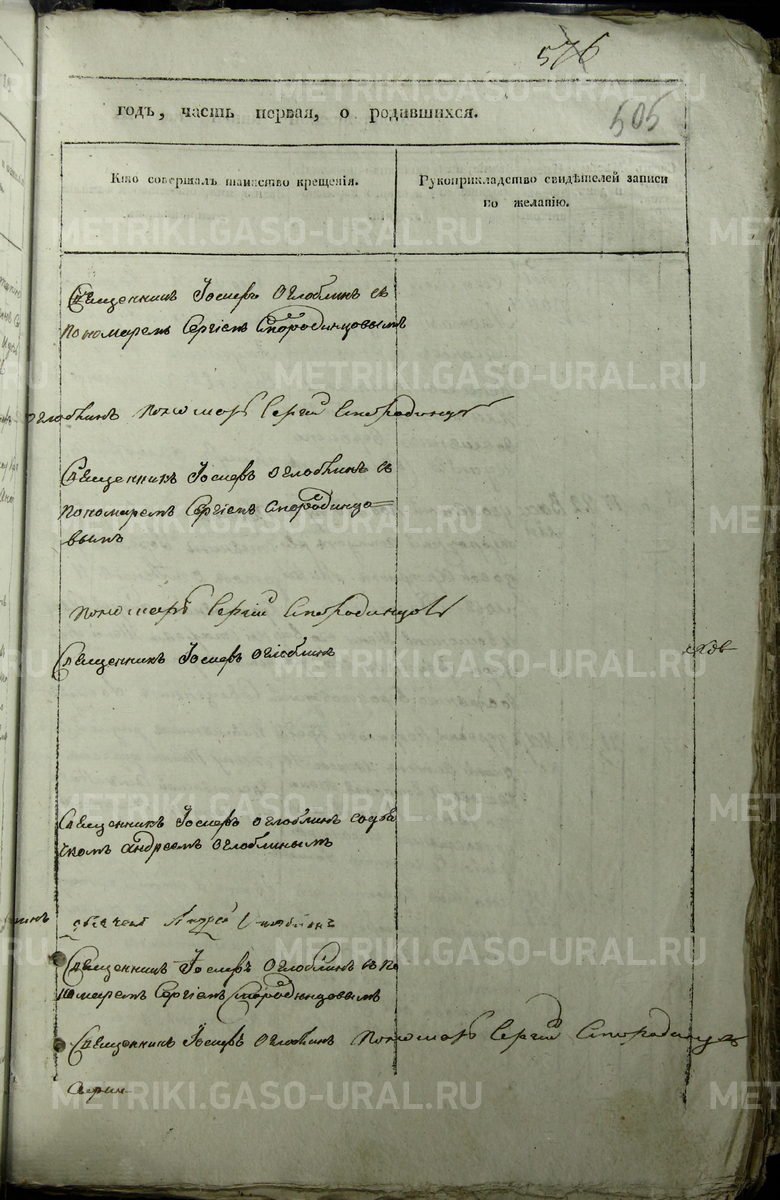 576
505
годъ, часть первая, о родившихся.
Кто совершалъ таинство крещенія.
Рукоприкладство свидѣтелей записи
по желанію.
METRIKI.GASO-URAL.RU
Священникъ Іосифъ Оглоблинъ съ
пономаремъ Сергіемъ Стородинцовымъ
Оглоблинъ пономарь Сергій Стородинцовъ
Священникъ Іосифъ Оглоблинъ съ
пономаремъ Сергіемъ Стородинцо=
вымъ
пономарь Сергій Стородинцовъ
Священникъ Іосифъ Оглоблинъ
Священникъ Іосифъ Оглоблинъ содья
чкомъ Андреемъ Оглоблинымъ
Андрей Оглоблинъ
Священникъ Іосифъ Оглоблинъ съ по
номаремъ Сергіемъ Стородинцовымъ
Священникъ Іосифъ Оглоблинъ пономарь Сергій Стородинцовъ